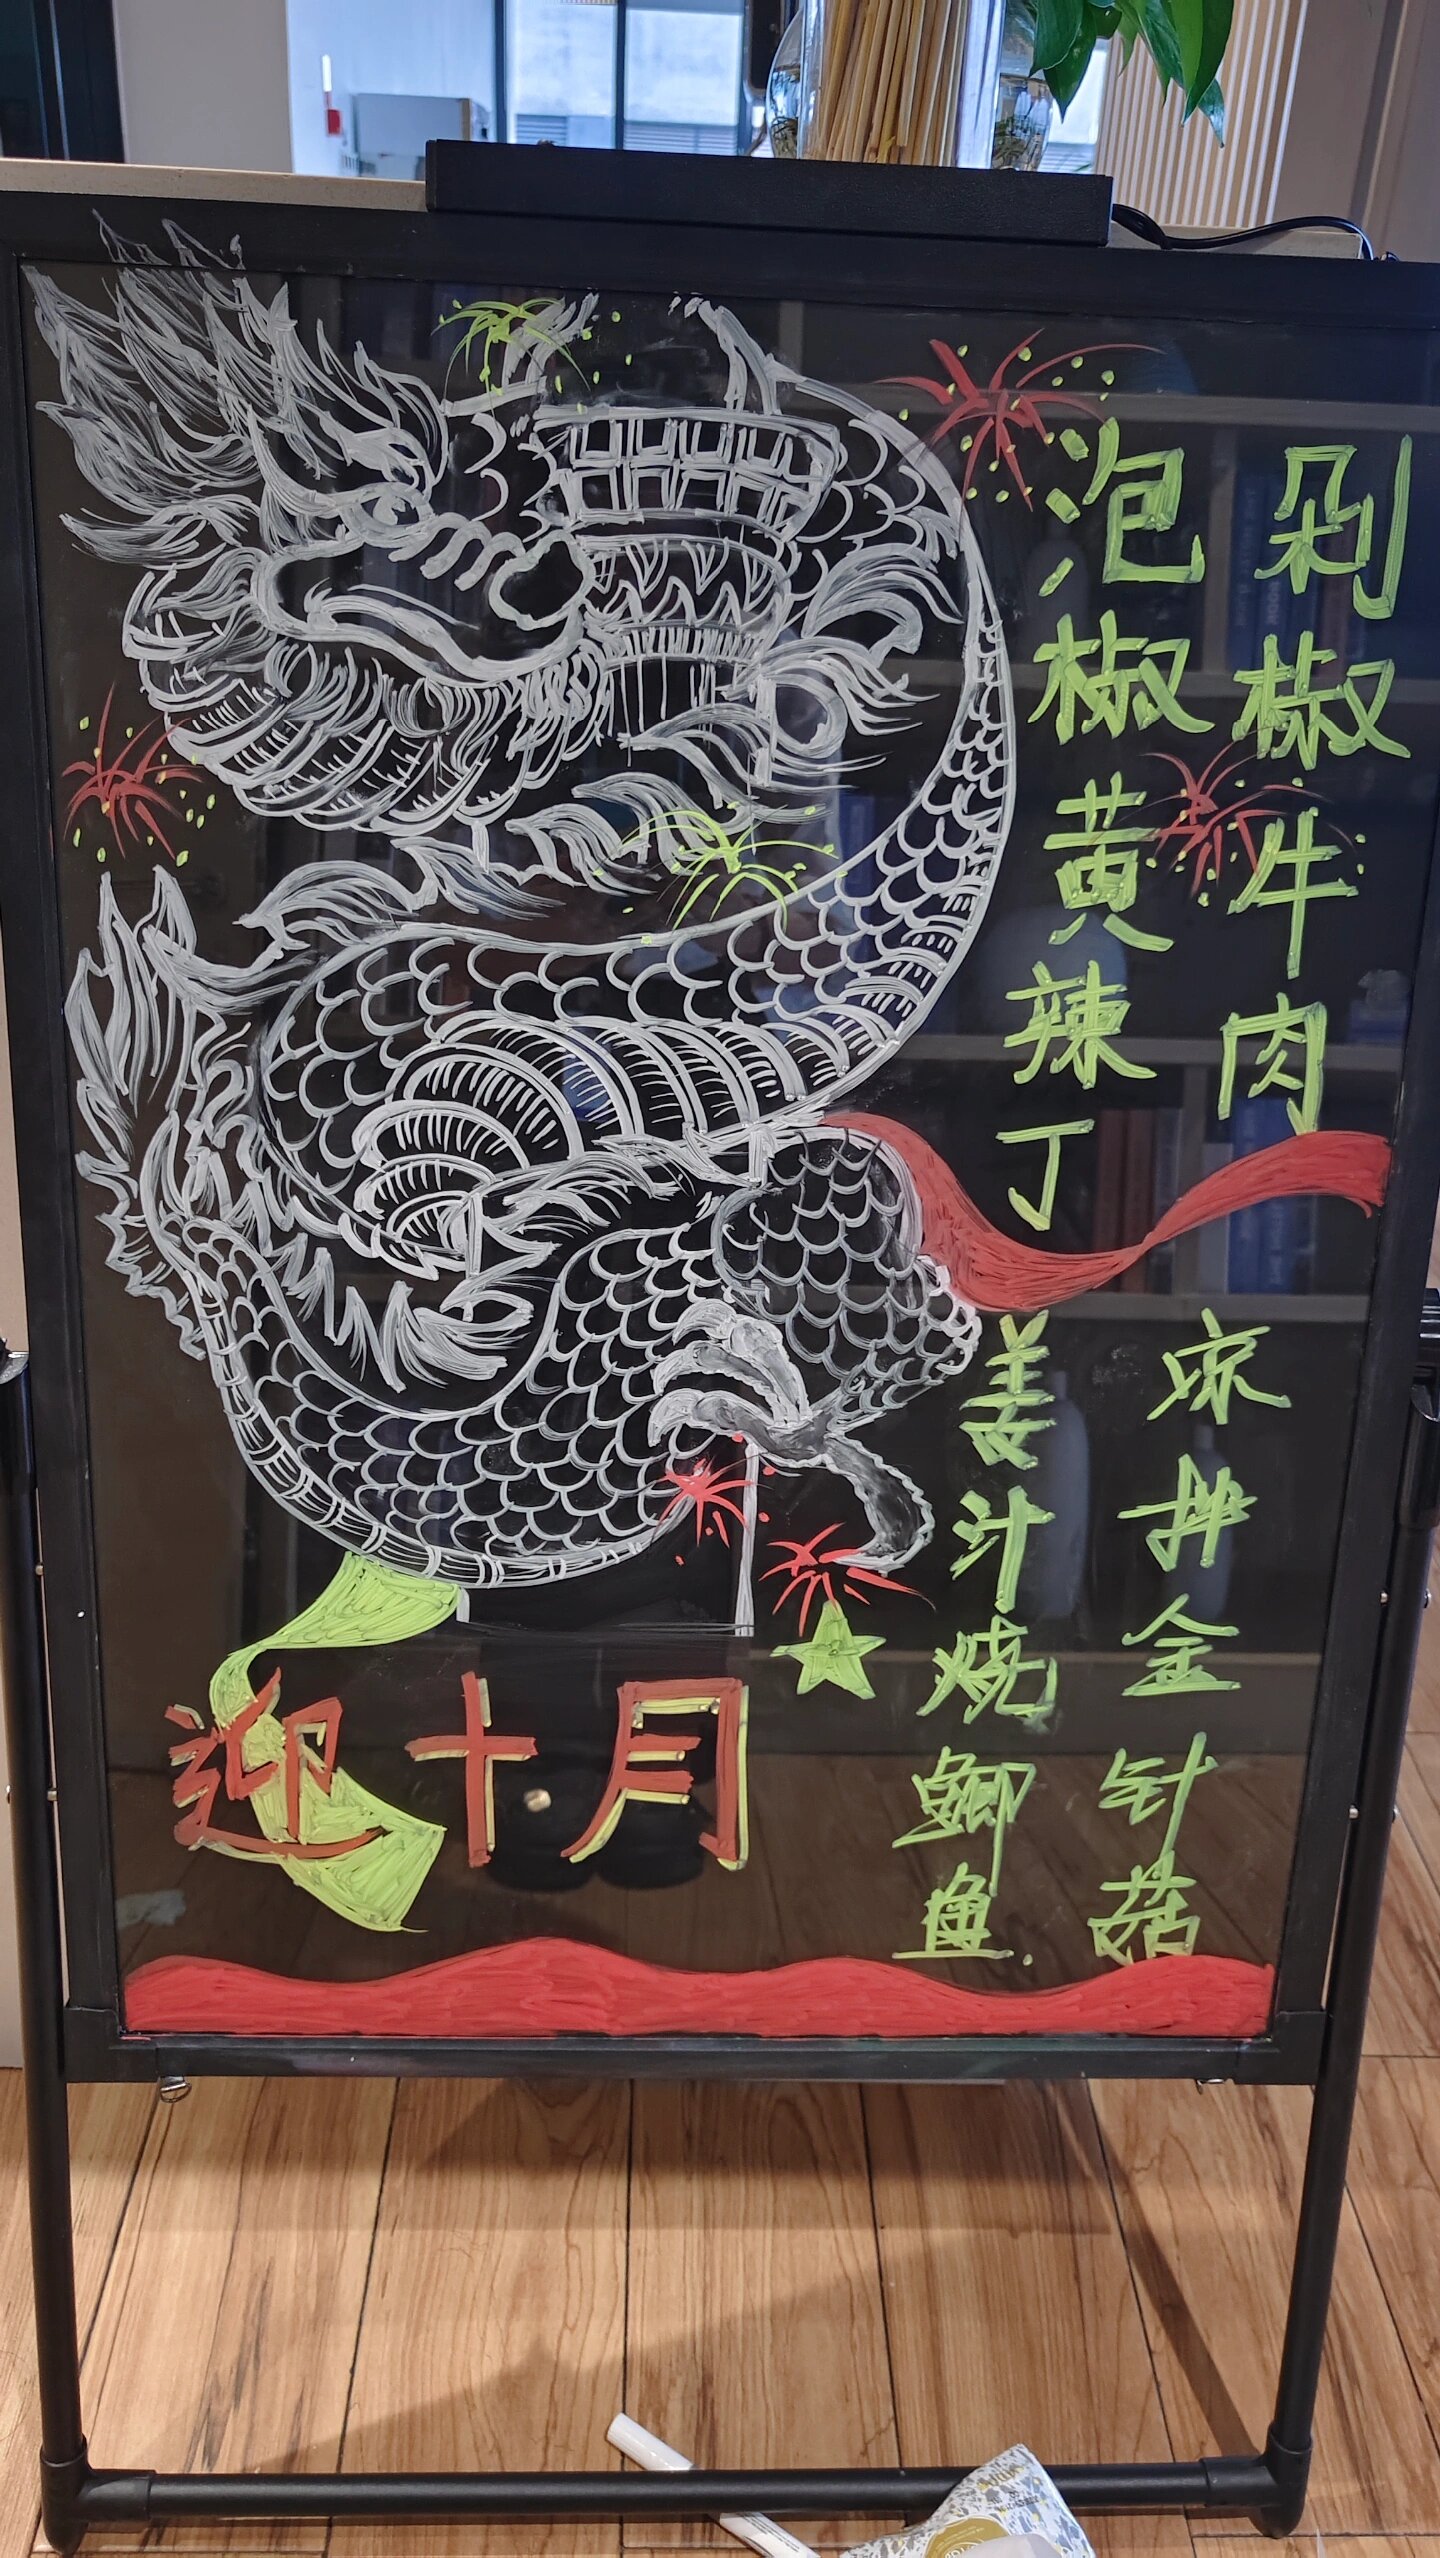 剁椒牛肉
泡椒黄辣丁
凉拌金针菇
姜汁烧鲫鱼.
迎十月